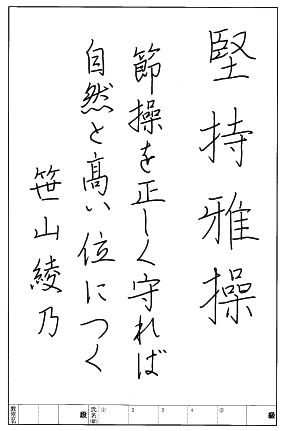 堅持雅操
節操を正しく守れば
自然と高い位につく
笹山綾乃
級
⑤
4
3
2
①
氏名
段
教室名